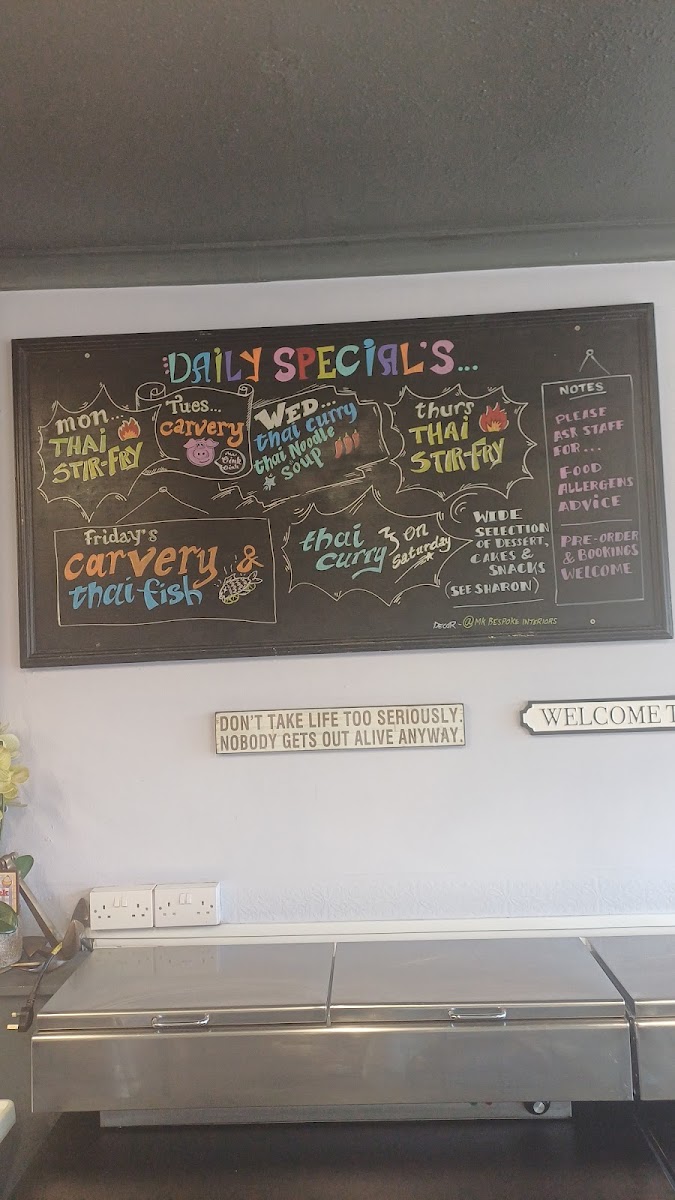 DAILY SPECIAL'S...
mon...
THAI
STIR-FRY
Tues...
carvery
oink
oink
WED...
thai curry
thai Noodle
SOUP
thurs
THAI
STIR-FRY
Friday's
carvery &
thai-fish
thai
curry
on
Saturday
WIDE
SELECTION
OF DESSERT,
CAKES &
SNACKS
(SEE SHARON)
NOTES
PLEASE
ASK STAFF
FOR...
FOOD
ALLERGENS
ADVICE
PRE-ORDER
& BOOKINGS
WELCOME
DECOR - @MK BESPOKE INTERIORS
DON'T TAKE LIFE TOO SERIOUSLY.
NOBODY GETS OUT ALIVE ANYWAY.
WELCOME T